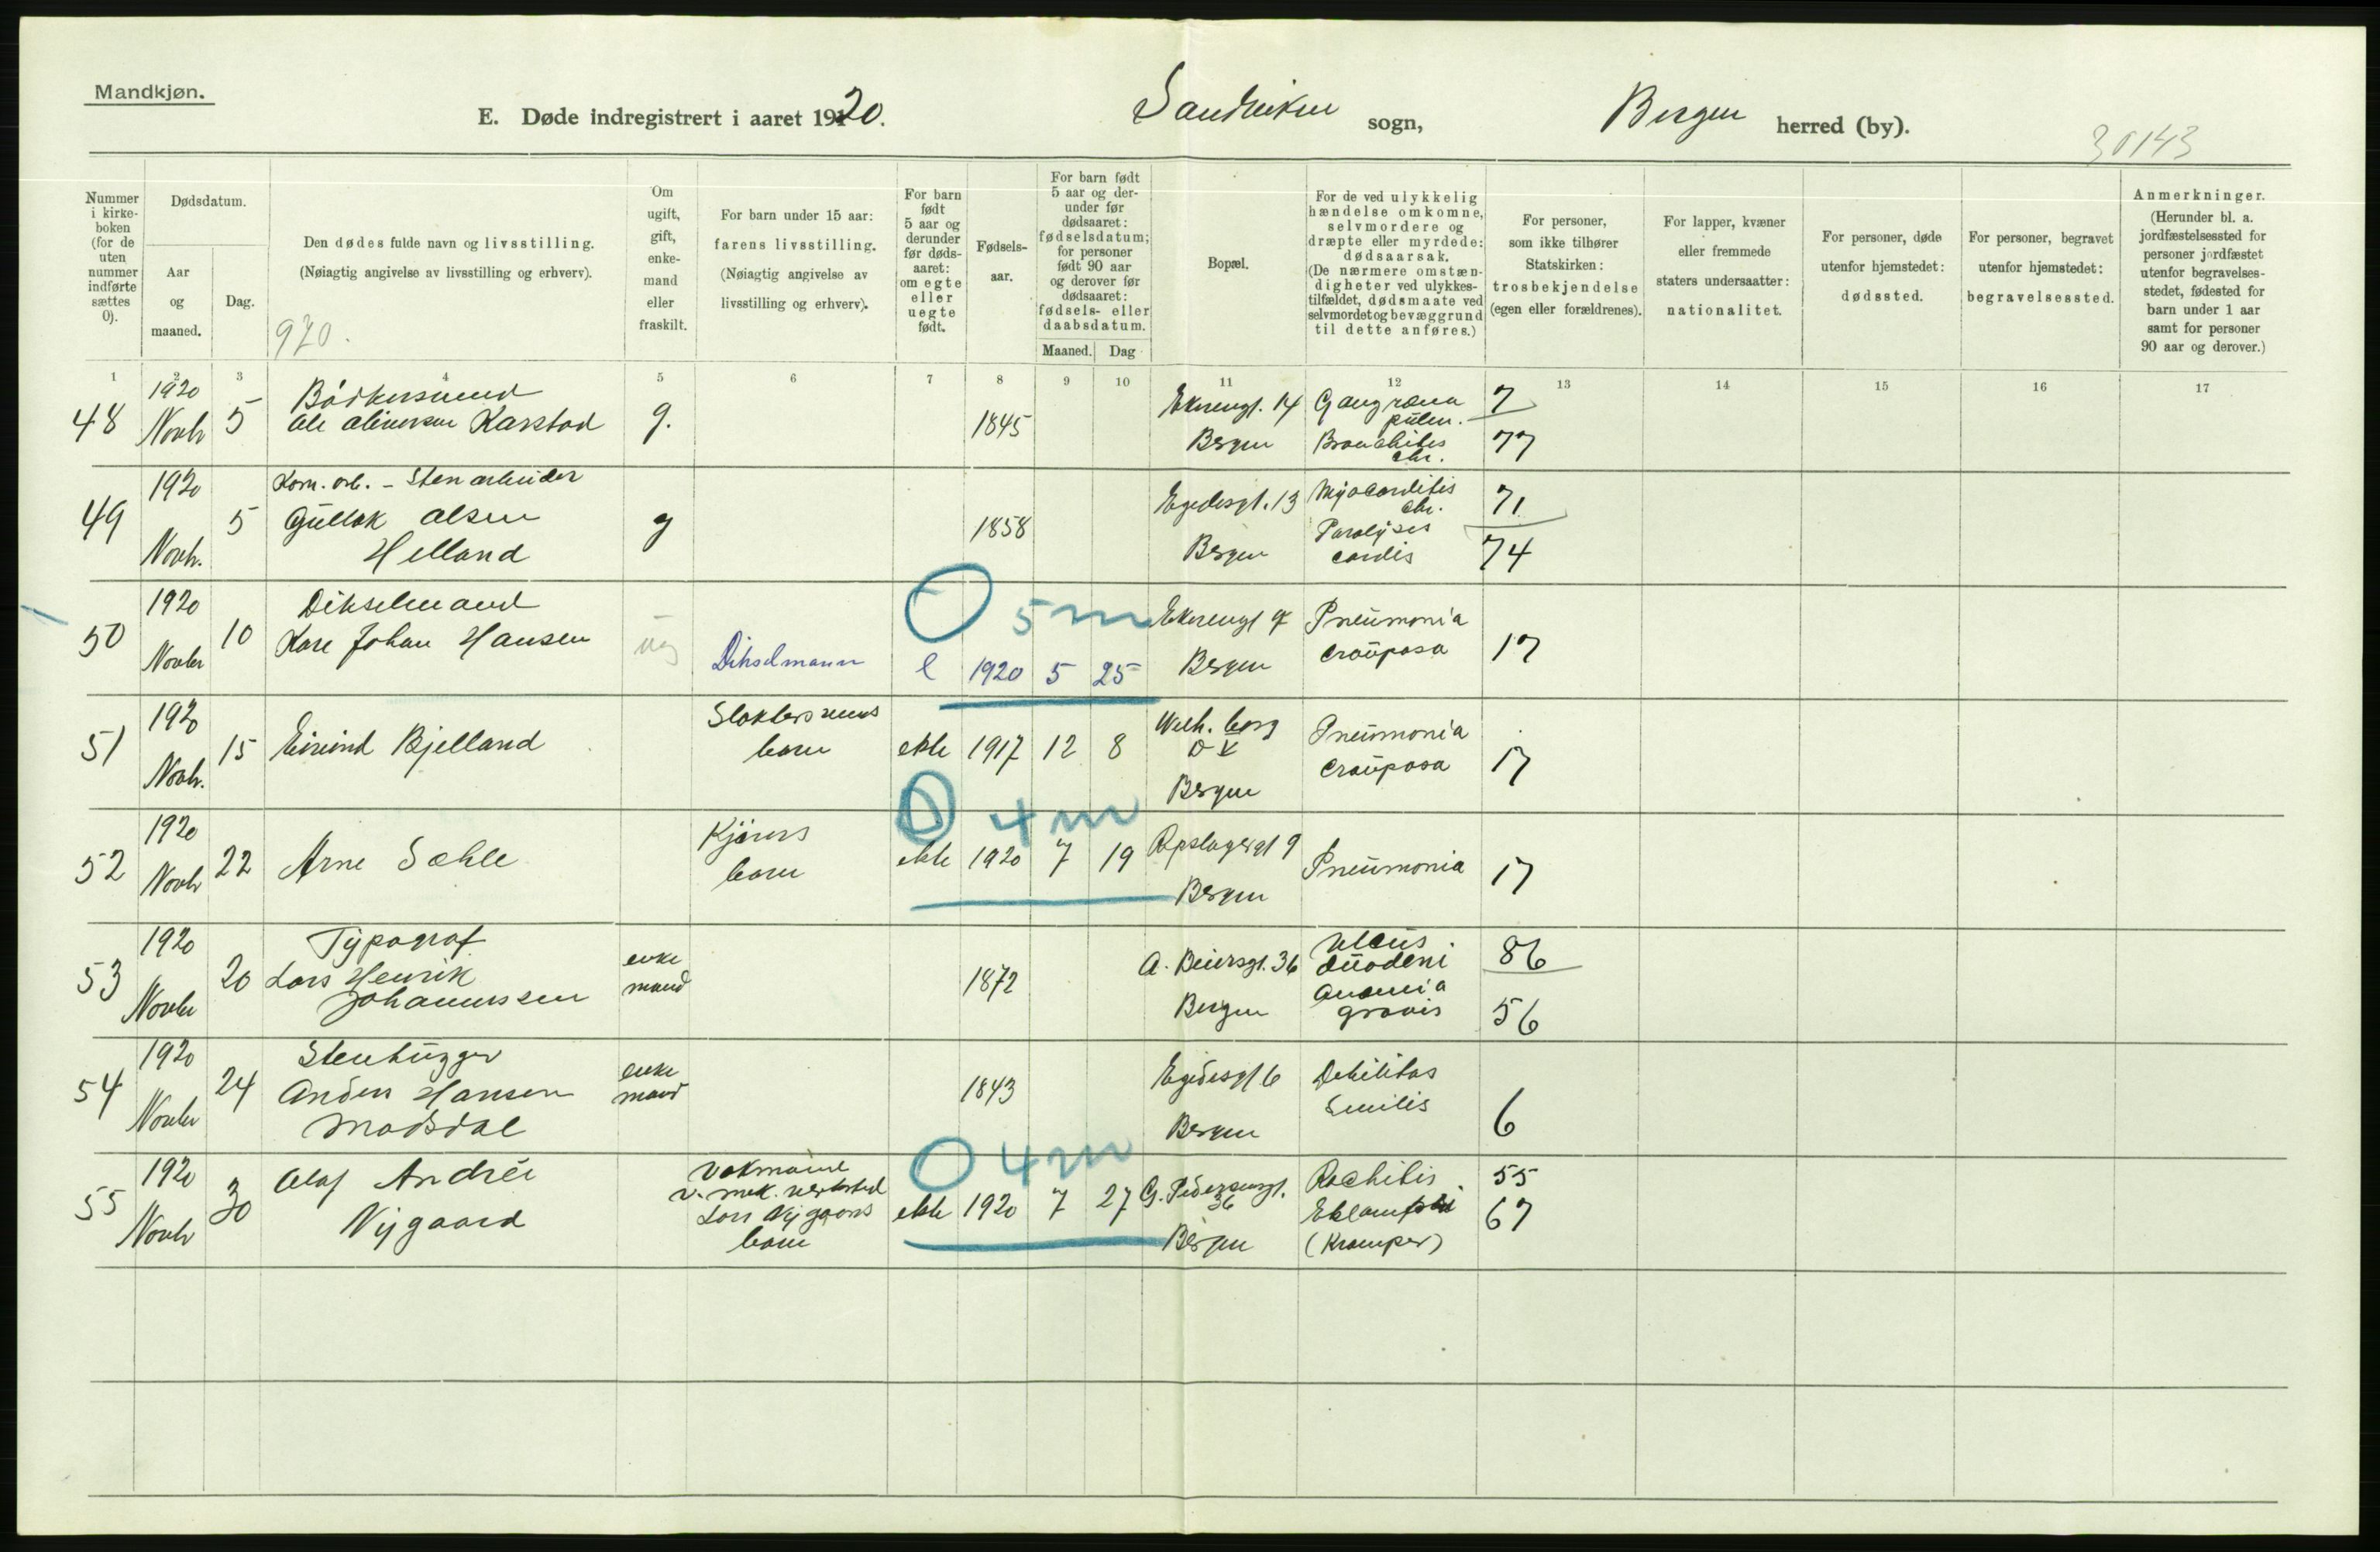 Mandkjøn.
E. Døde indregistrert i aaret 1920. Sandviken sogn, Bergen herred (by).
30143
Nummer i kirkeboken (for de uten nummer indførte sættes 0).
Dødsdatum.
Aar og maaned.
Dag.
Den dødes fulde navn og livsstilling.
(Nøiagtig angivelse av livsstilling og erhverv).
920.
Om ugift, gift, enkemand eller fraskilt.
For barn under 15 aar: farens livsstilling.
(Nøiagtig angivelse av livsstilling og erhverv).
For barn født 5 aar og derunder før dødsaaret: om egte eller uegte født.
Fødselsaar.
For barn født 5 aar og derunder før dødsaaret: fødselsdatum; for personer født 90 aar og derover før dødsaaret: fødsels- eller daabsdatum.
Maaned. Dag
Bopæl.
For de ved ulykkelig hændelse omkomne, selvmordere og dræpte eller myrdede: dødsaarsak.
(De nærmere omstændigheter ved ulykkestilfældet, dødsmaate ved selvmordet og bevæggrund til dette anføres.)
For personer, som ikke tilhører Statskirken: trosbekjendelse (egen eller forældrenes).
For lapper, kvæner eller fremmede staters undersaatter: nationalitet.
For personer, døde utenfor hjemstedet: dødssted.
For personer, begravet utenfor hjemstedet: begravelsessted.
Anmerkninger.
(Herunder bl. a. jordfæstelsessted for personer jordfæstet utenfor begravelsesstedet, fødested for barn under 1 aar samt for personer 90 aar og derover.)
1 2 3 4 5 6 7 8 9 10 11 12 13 14 15 16 17
48 1920 Novbr 5 Bødkersvend
Ole Oliversen Karstad g. 1845 Ekrengt. 14 Bergen Gangræna pulm. 7
Bronchites chr. 77
49 1920 Novbr. 5 Kom. arb. - Stenarbeider
Gullak Olsen
Helland g 1858 Egedesgt. 13 Bergen Myocarditis chr. 71
Paralyses cordis 74
50 1920 Novbr 10 Dikselmand
Kare Johan Hansen ug Dikselmann e 1920 5 25 Ekrengt 9 Bergen Pneumonia crouposa 17
5 m
51 1920 Novbr. 15 Eivind Bjelland Slaktersvends barn ekte 1917 12 8 Welh. borg Bergen Pneumonia crouposa 17
52 1920 Novbr 22 Arne Sæhle Kjørers barn ekte 1920 7 19 Repslagergt 9 Bergen Pneumonia 17
4 m
53 1920 Novbr 20 Typograf
Lars Henrik
Johannessen enke mand 1872 A. Beiersgt. 36 Bergen Ulcus duodeni 86
Anæmia gravis 56
54 1920 Novbr 24 Stenhugger
Anders Hansen
Madsdal enke mand 1843 Egedesgt 6 Bergen Debilitas Senilis 6
55 1920 Novbr 30 Olaf Andréi
Nygaard Vakmand
v. mek. verksted
Lars Nygaards
barn ekte 1920 7 27 G. Pedersensgt. 36 Bergen Rachitis 55
Eklampsi 67
(Kramper)
4 m